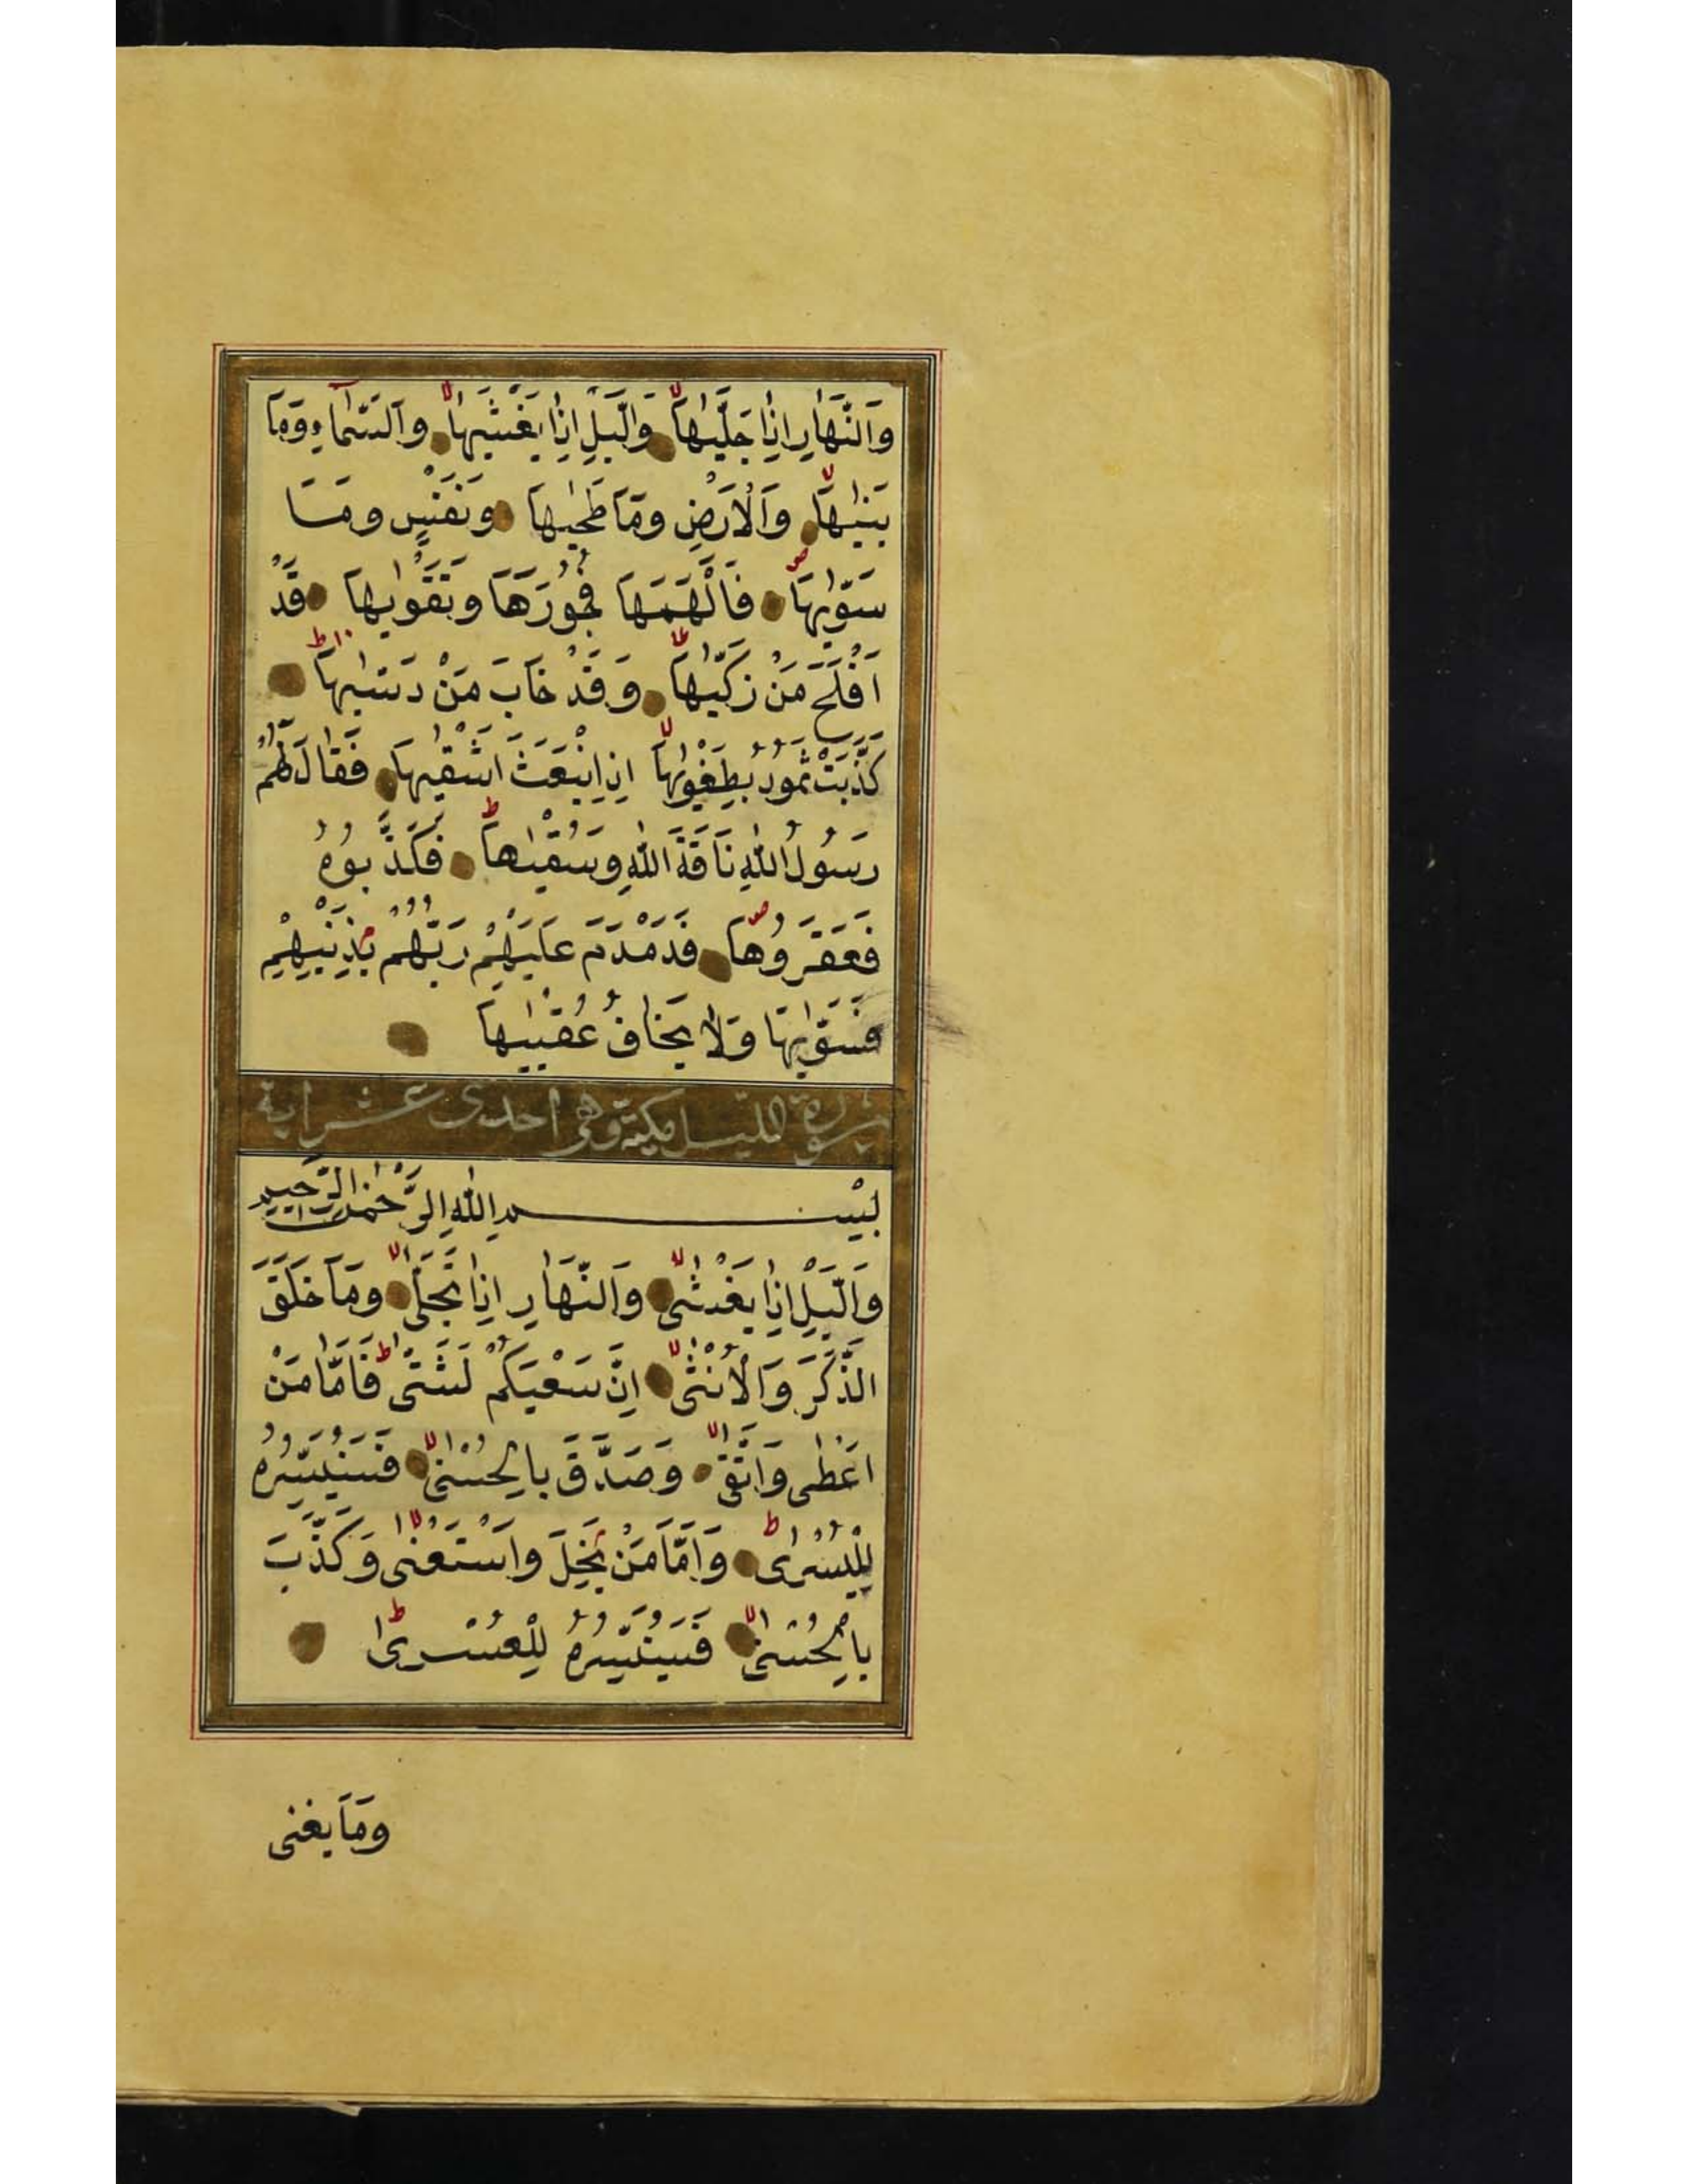 وَالنَّهَارِ اِذَا جَلّٰيهَاۙ وَالَّيْلِ اِذَا يَغْشٰيهَاۙ وَالسَّمَاءِ وَمَا
بَنٰيهَاۙ وَالْاَرْضِ وَمَا طَحٰيهَا وَنَفْسٍ وَمَا
سَوّٰيهَاۖ فَاَلْهَمَهَا فُجُورَهَا وَتَقْوٰيهَا قَدْ
اَفْلَحَ مَنْ زَكّٰيهَاۙ وَقَدْ خَابَ مَنْ دَسّٰيهَاۜ
كَذَّبَتْ ثَمُودُ بِطَغْوٰيهَاۙ اِذِ انْبَعَثَ اَشْقٰيهَا فَقَالَ لَهُمْ
رَسُولُ اللّٰهِ نَاقَةَ اللّٰهِ وَسُقْيٰهَاۜ فَكَذَّبُوهُ
فَعَقَرُوهَاۖ فَدَمْدَمَ عَلَيْهِمْ رَبُّهُمْ بِذَنْبِهِمْ
فَسَوّٰيهَا وَلَا يَخَافُ عُقْبٰيهَا
سورة الليل مكية وهي احدى عشر اية
بِسْمِ اللّٰهِ الرَّحْمٰنِ الرَّحِيمِ
وَالَّيْلِ اِذَا يَغْشٰىۙ وَالنَّهَارِ اِذَا تَجَلّٰىۙ وَمَا خَلَقَ
الذَّكَرَ وَالْاُنْثٰىۙ اِنَّ سَعْيَكُمْ لَشَتّٰىۜ فَاَمَّا مَنْ
اَعْطٰى وَاتَّقٰىۙ وَصَدَّقَ بِالْحُسْنٰىۙ فَسَنُيَسِّرُهُ
لِلْيُسْرٰىۜ وَاَمَّا مَنْ بَخِلَ وَاسْتَغْنٰىۙ وَكَذَّبَ
بِالْحُسْنٰىۙ فَسَنُيَسِّرُهُ لِلْعُسْرٰىۜ
وَمَا يغنى